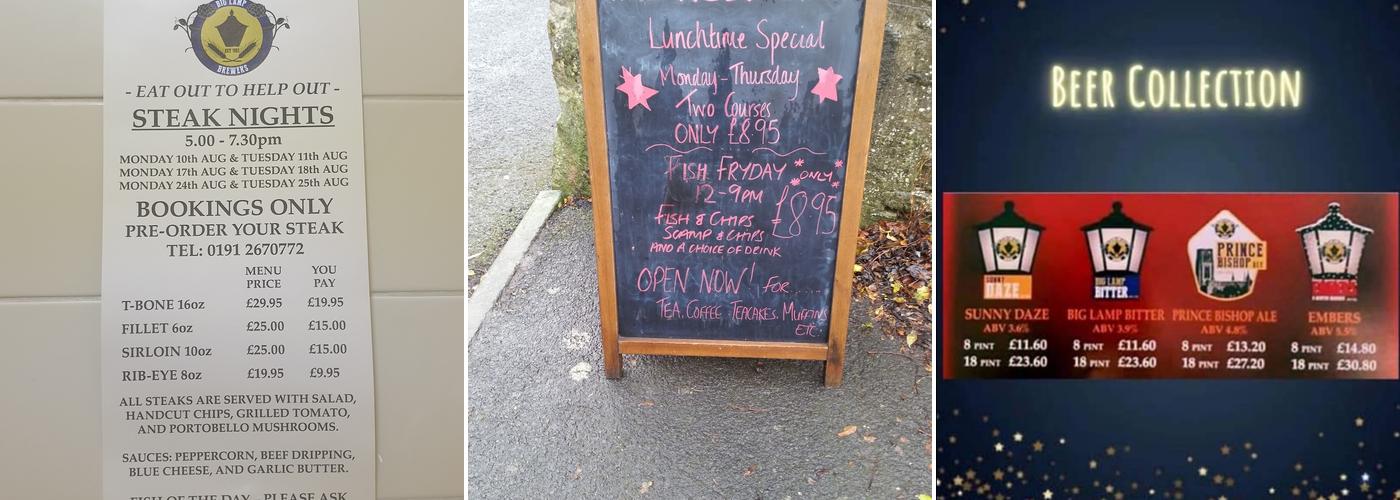 BIG LAMP
EST 1982
BREWERS
- EAT OUT TO HELP OUT -
STEAK NIGHTS
5.00 - 7.30pm
MONDAY 10th AUG & TUESDAY 11th AUG
MONDAY 17th AUG & TUESDAY 18th AUG
MONDAY 24th AUG & TUESDAY 25th AUG
BOOKINGS ONLY
PRE-ORDER YOUR STEAK
TEL: 0191 2670772
MENU PRICE YOU PAY
T-BONE 16oz £29.95 £19.95
FILLET 6oz £25.00 £15.00
SIRLOIN 10oz £25.00 £15.00
RIB-EYE 8oz £19.95 £9.95
ALL STEAKS ARE SERVED WITH SALAD,
HANDCUT CHIPS, GRILLED TOMATO,
AND PORTOBELLO MUSHROOMS.
SAUCES: PEPPERCORN, BEEF DRIPPING,
BLUE CHEESE, AND GARLIC BUTTER.
FISH OF THE DAY - PLEASE ASK
Lunchtime Special
Monday-Thursday
Two Courses
ONLY £8.95
FISH FRYDAY
12-9PM
FISH & CHIPS
SCAMP & CHIPS
AND A CHOICE OF DRINK
ONLY
£8.95
OPEN NOW! FOR.....
TEA. COFFEE TEACAKES. MUFFINS
ETC.
BEER COLLECTION
SUNNY
DAZE
BIG LAMP
BITTER
PRINCE
BISHOP ALE
SUNNY DAZE BIG LAMP BITTER PRINCE BISHOP ALE EMBERS
ABV 3.6% ABV 3.9% ABV 4.8% ABV 5.5%
8 PINT £11.60 8 PINT £11.60 8 PINT £13.20 8 PINT £14.80
18 PINT £23.60 18 PINT £23.60 18 PINT £27.20 18 PINT £30.80